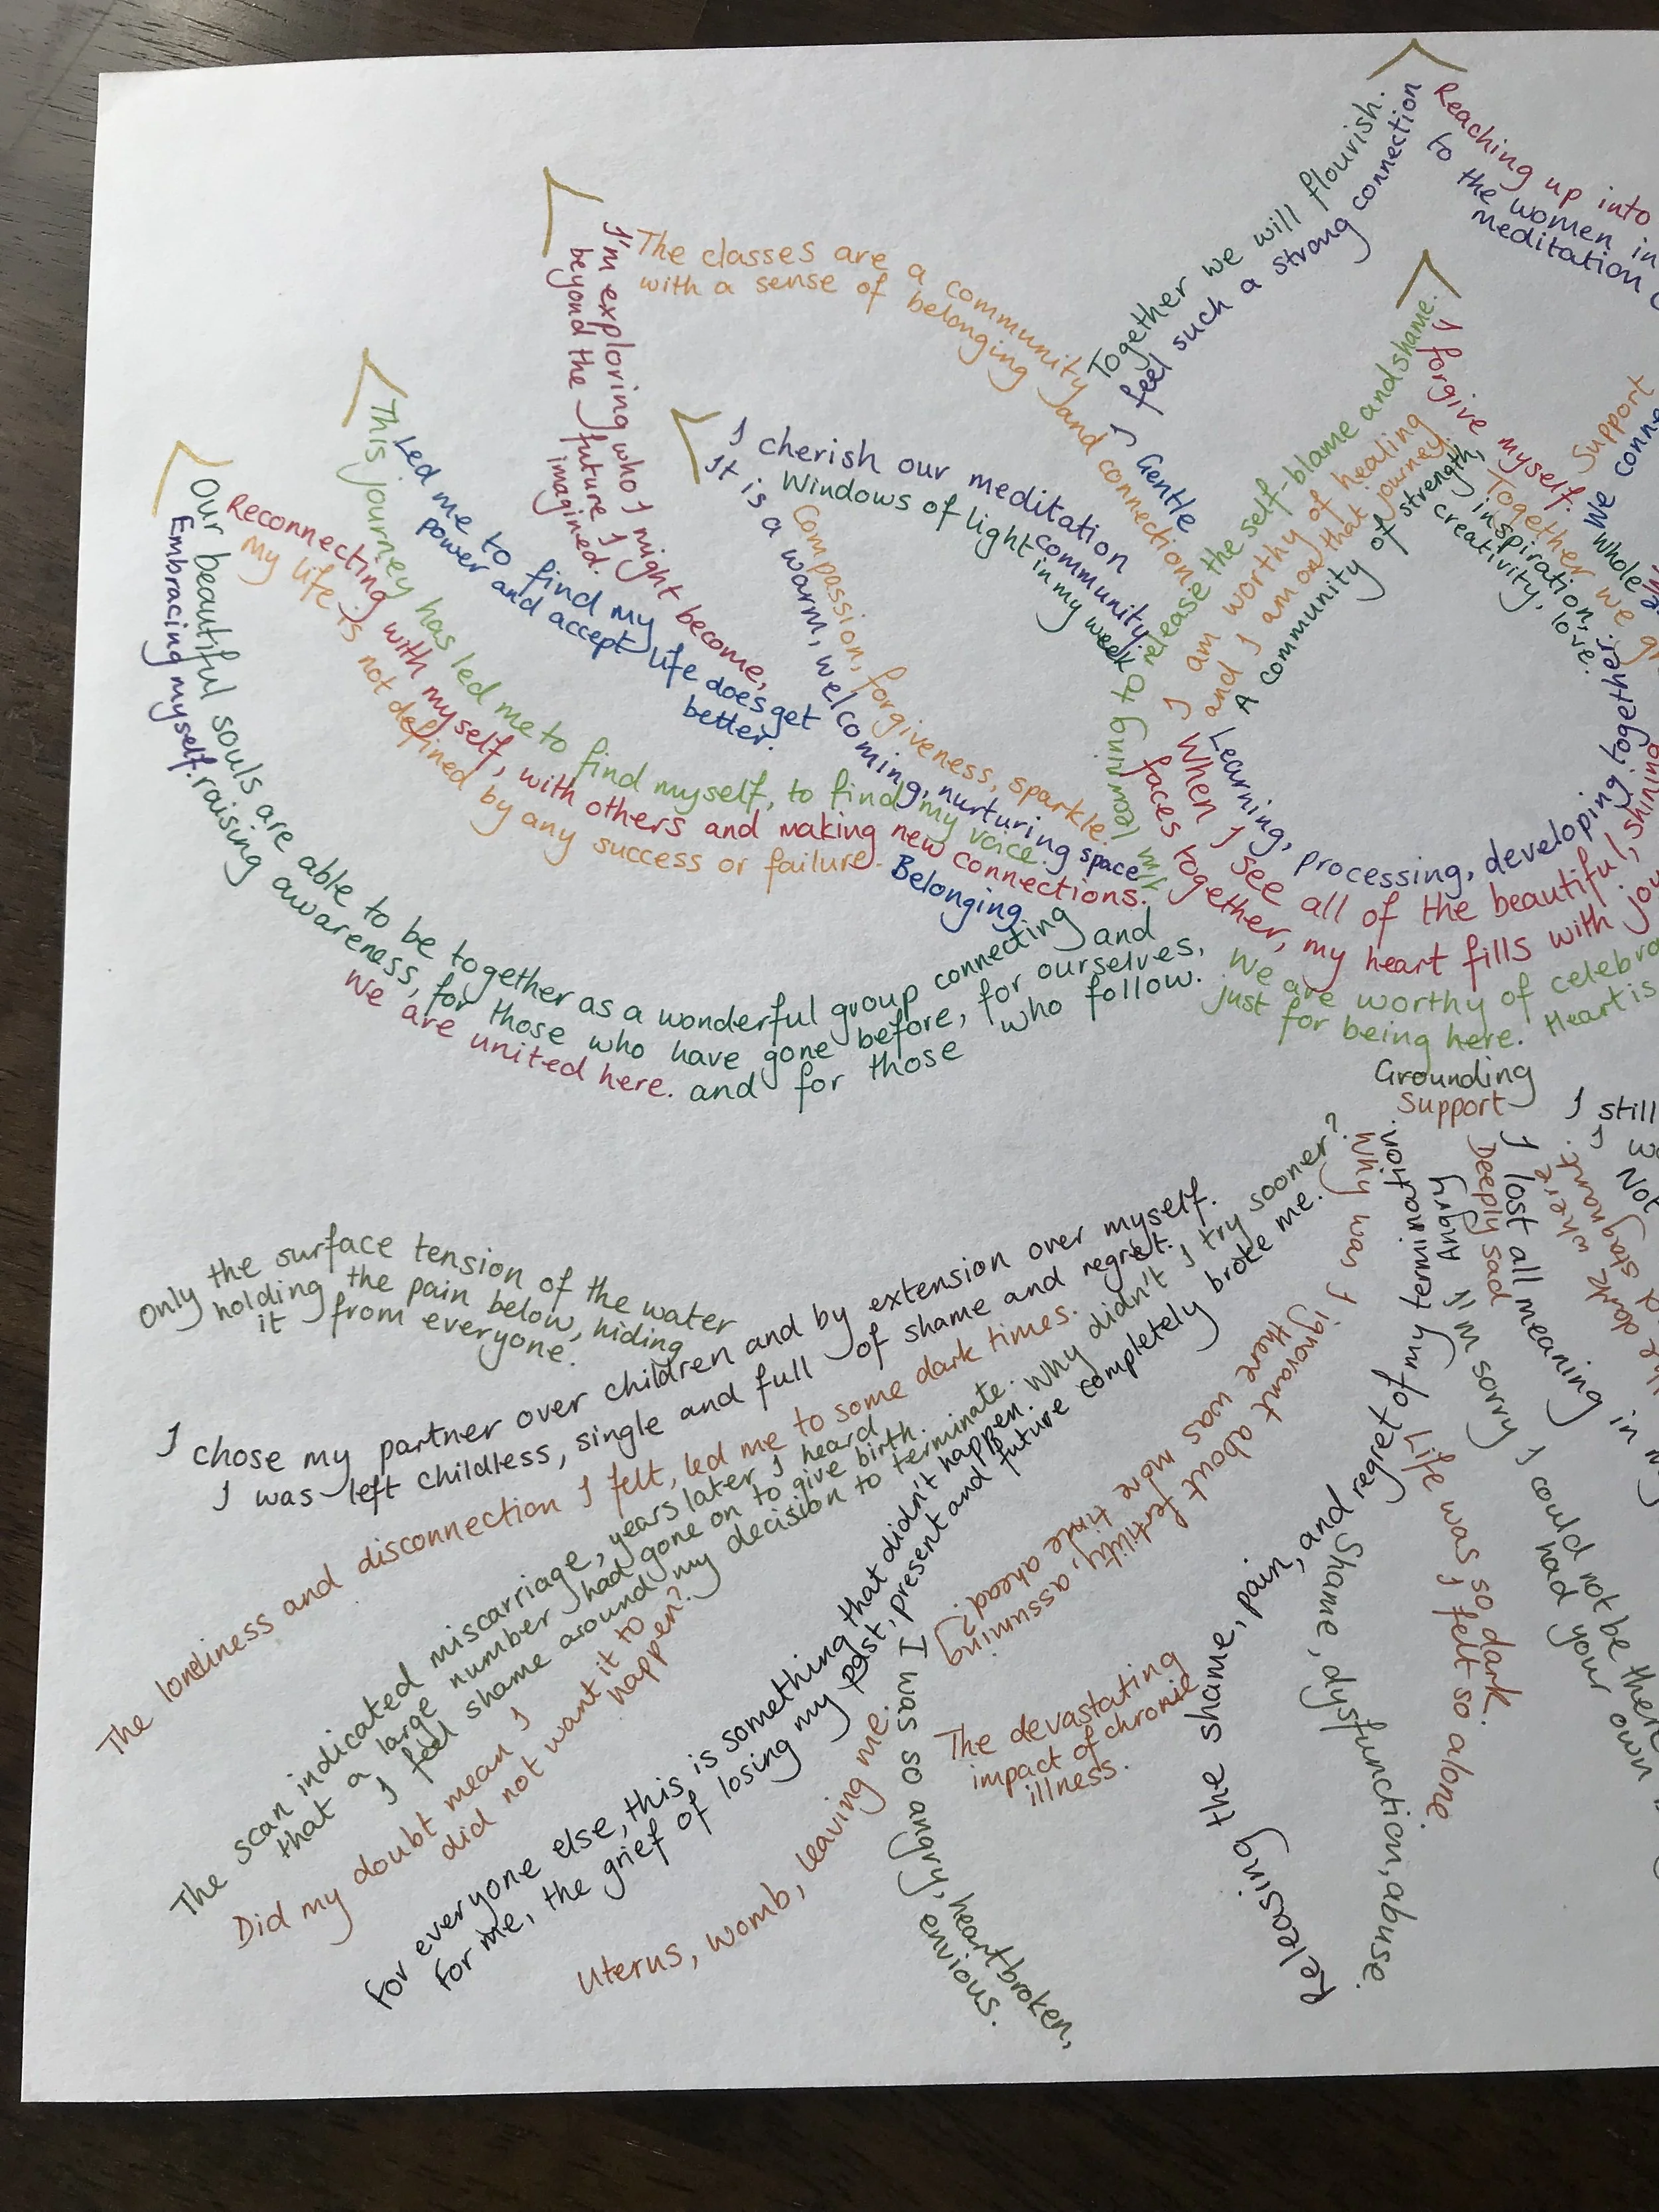 Together we will flourish.
I feel such a strong connection
Reaching up into
to the women in
meditation
I'm exploring who I might become,
beyond the future I
imagined.
The classes are a community and connection
with a sense of belonging
This journey has led me to find myself, to find my voice.
Led me to find my
power and accept life does get
better.
I cherish our meditation
community.
Windows of light in my week
It is a warm, welcoming, nurturing space
Compassion, forgiveness, sparkle.
Gentle
learning to release the self-blame and shame.
I forgive myself.
I am worthy of healing
and I am on that journey.
A community of strength,
inspiration,
creativity, love.
Together we
Support
We
whole
Our beautiful souls are able to be together as a wonderful group connecting and
Embracing myself. raising awareness, for those who have gone before, for ourselves,
and for those who follow.
We are united here.
Reconnecting with myself, with others and making new connections.
My life is not defined by any success or failure.
Belonging.
Learning, processing, developing together.
When I see all of the beautiful, shining
faces together, my heart fills with
We are worthy of
just for being here. Heart is
Grounding
Support
Only the surface tension of the water
holding the pain below, hiding
it from everyone.
I chose my partner over children and by extension over myself.
I was left childless, single and full of shame and regret.
The loneliness and disconnection I felt, led me to some dark times.
The scan indicated miscarriage, years later I heard
that a large number had gone on to give birth.
I feel shame around my decision to terminate. Why didn't I try sooner?
Did my doubt mean I
did not want it to
happen?
For everyone else, this is something that didn't happen.
For me, the grief of losing my past, present and future completely broke me.
Uterus, womb, leaving me.
I was so angry, heartbroken,
envious.
Why was I ignorant about fertility, assuming
there was more time ahead?
The devastating
impact of chronic
illness.
Releasing the shame, pain, and regret of my termination.
Shame, dysfunction, abuse.
Life was so dark.
I felt so alone
Angry
I'm sorry I could not be there
had your own
Deeply sad
I lost all meaning in
I still
I
Not
stagnant.
where
dark